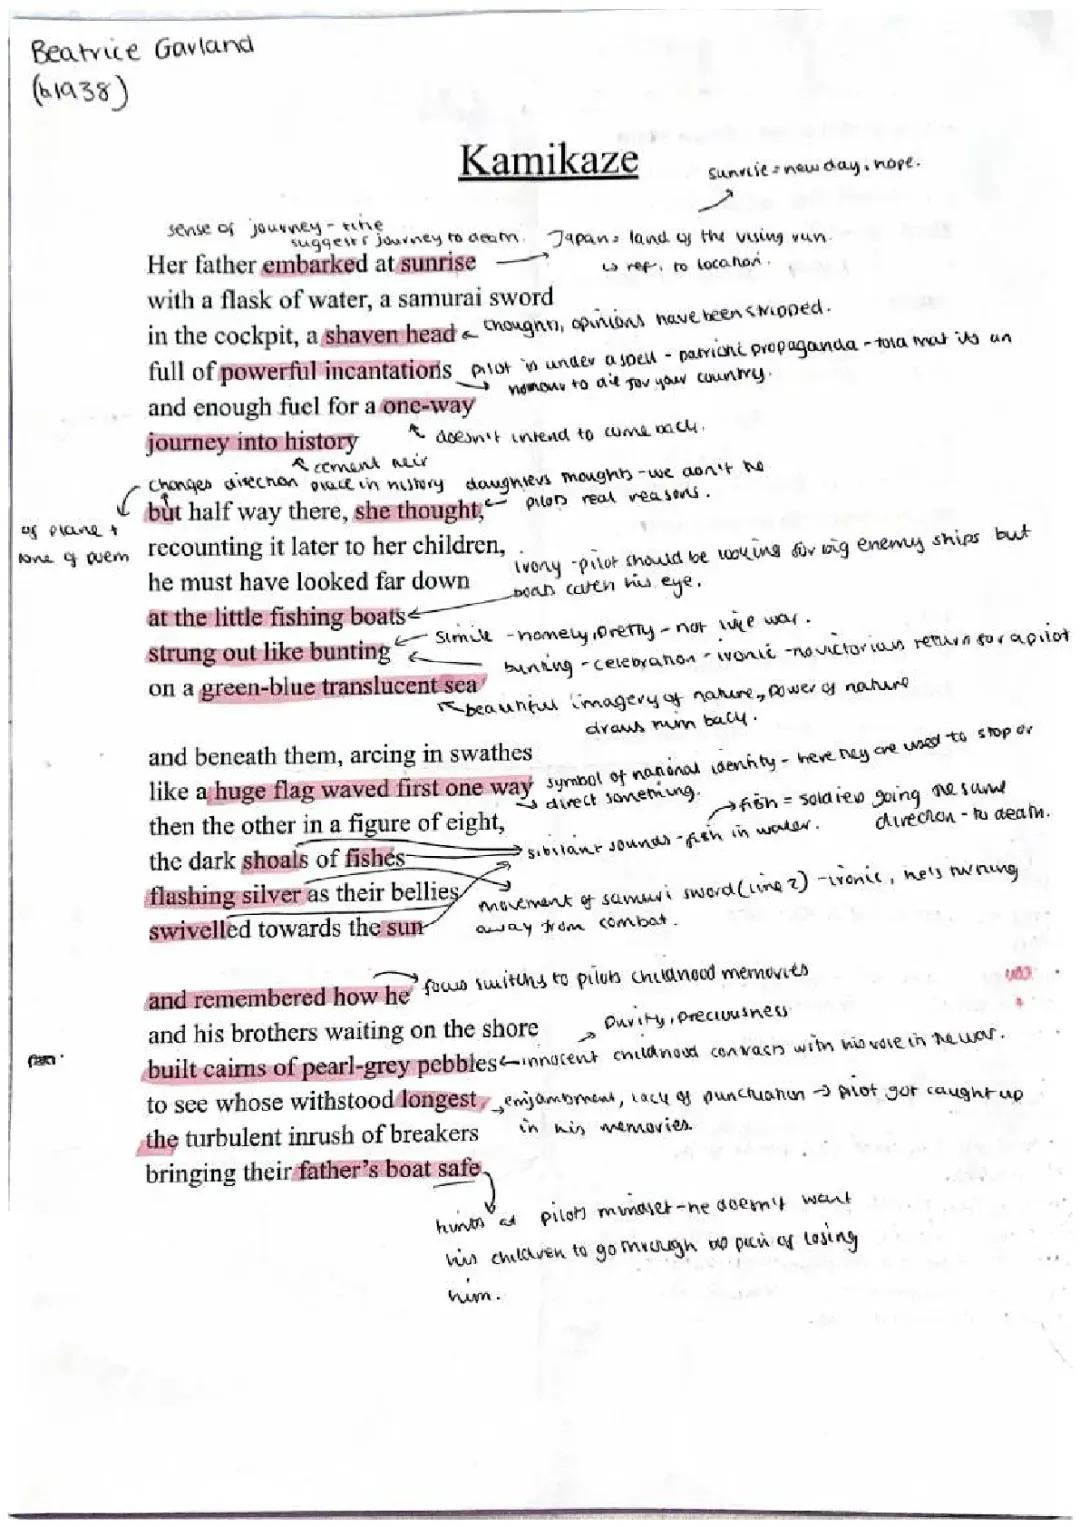 Beatrice Garland
(b1938)
Kamikaze
sunrise = new day, hope.
sense of journey - time
suggests journey to death.
Japan = land of the rising sun.
↳ ref. to location.
Her father embarked at sunrise
with a flask of water, a samurai sword
in the cockpit, a shaven head
thoughts, opinions have been stripped.
full of powerful incantations
pilot is under a spell - patriotic propaganda - told that its an
honour to die for your country.
and enough fuel for a one-way
journey into history
doesn't intend to come back.
cement their
place in history
changes direction
of plane +
tone of poem
daughters thoughts - we don't no
pilots real reasons.
but half way there, she thought,
recounting it later to her children,
he must have looked far down
irony - pilot should be looking for big enemy ships but
boats catch his eye.
at the little fishing boats
strung out like bunting
simile - homely, pretty - not like war.
bunting - celebration - ironic - no victorious return for a pilot
on a green-blue translucent sea
beautiful imagery of nature, power of nature
draws him back.
and beneath them, arcing in swathes
like a huge flag waved first one way
symbol of national identity - here they are used to stop or
direct something.
then the other in a figure of eight,
fish = soldiers going the same
direction - to death.
the dark shoals of fishes
sibilant sounds - fish in water.
flashing silver as their bellies
movement of samuri sword (line 2) - ironic, he's turning
away from combat.
swivelled towards the sun
and remembered how he
focus switchs to pilots childhood memories
and his brothers waiting on the shore
purity, preciousness
built cairns of pearl-grey pebbles
innocent childhood contrasts with his role in the war.
to see whose withstood longest
enjambment, lack of punctuation → pilot got caught up
in his memories.
the turbulent inrush of breakers
bringing their father's boat safe
hints at pilots mindset - he doesn't want
his children to go through pain of losing
him.